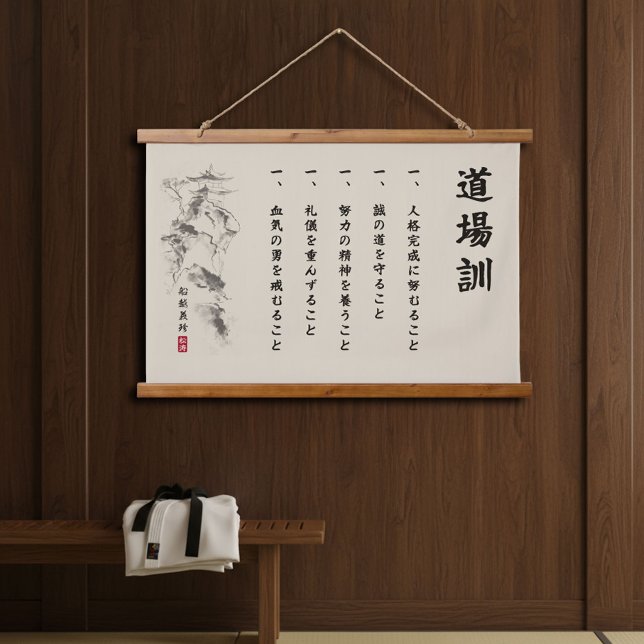 道場訓
一、人格完成に努むること
一、誠の道を守ること
一、努力の精神を養うこと
一、礼儀を重んずること
一、血気の勇を戒むること
船越義珍
松涛